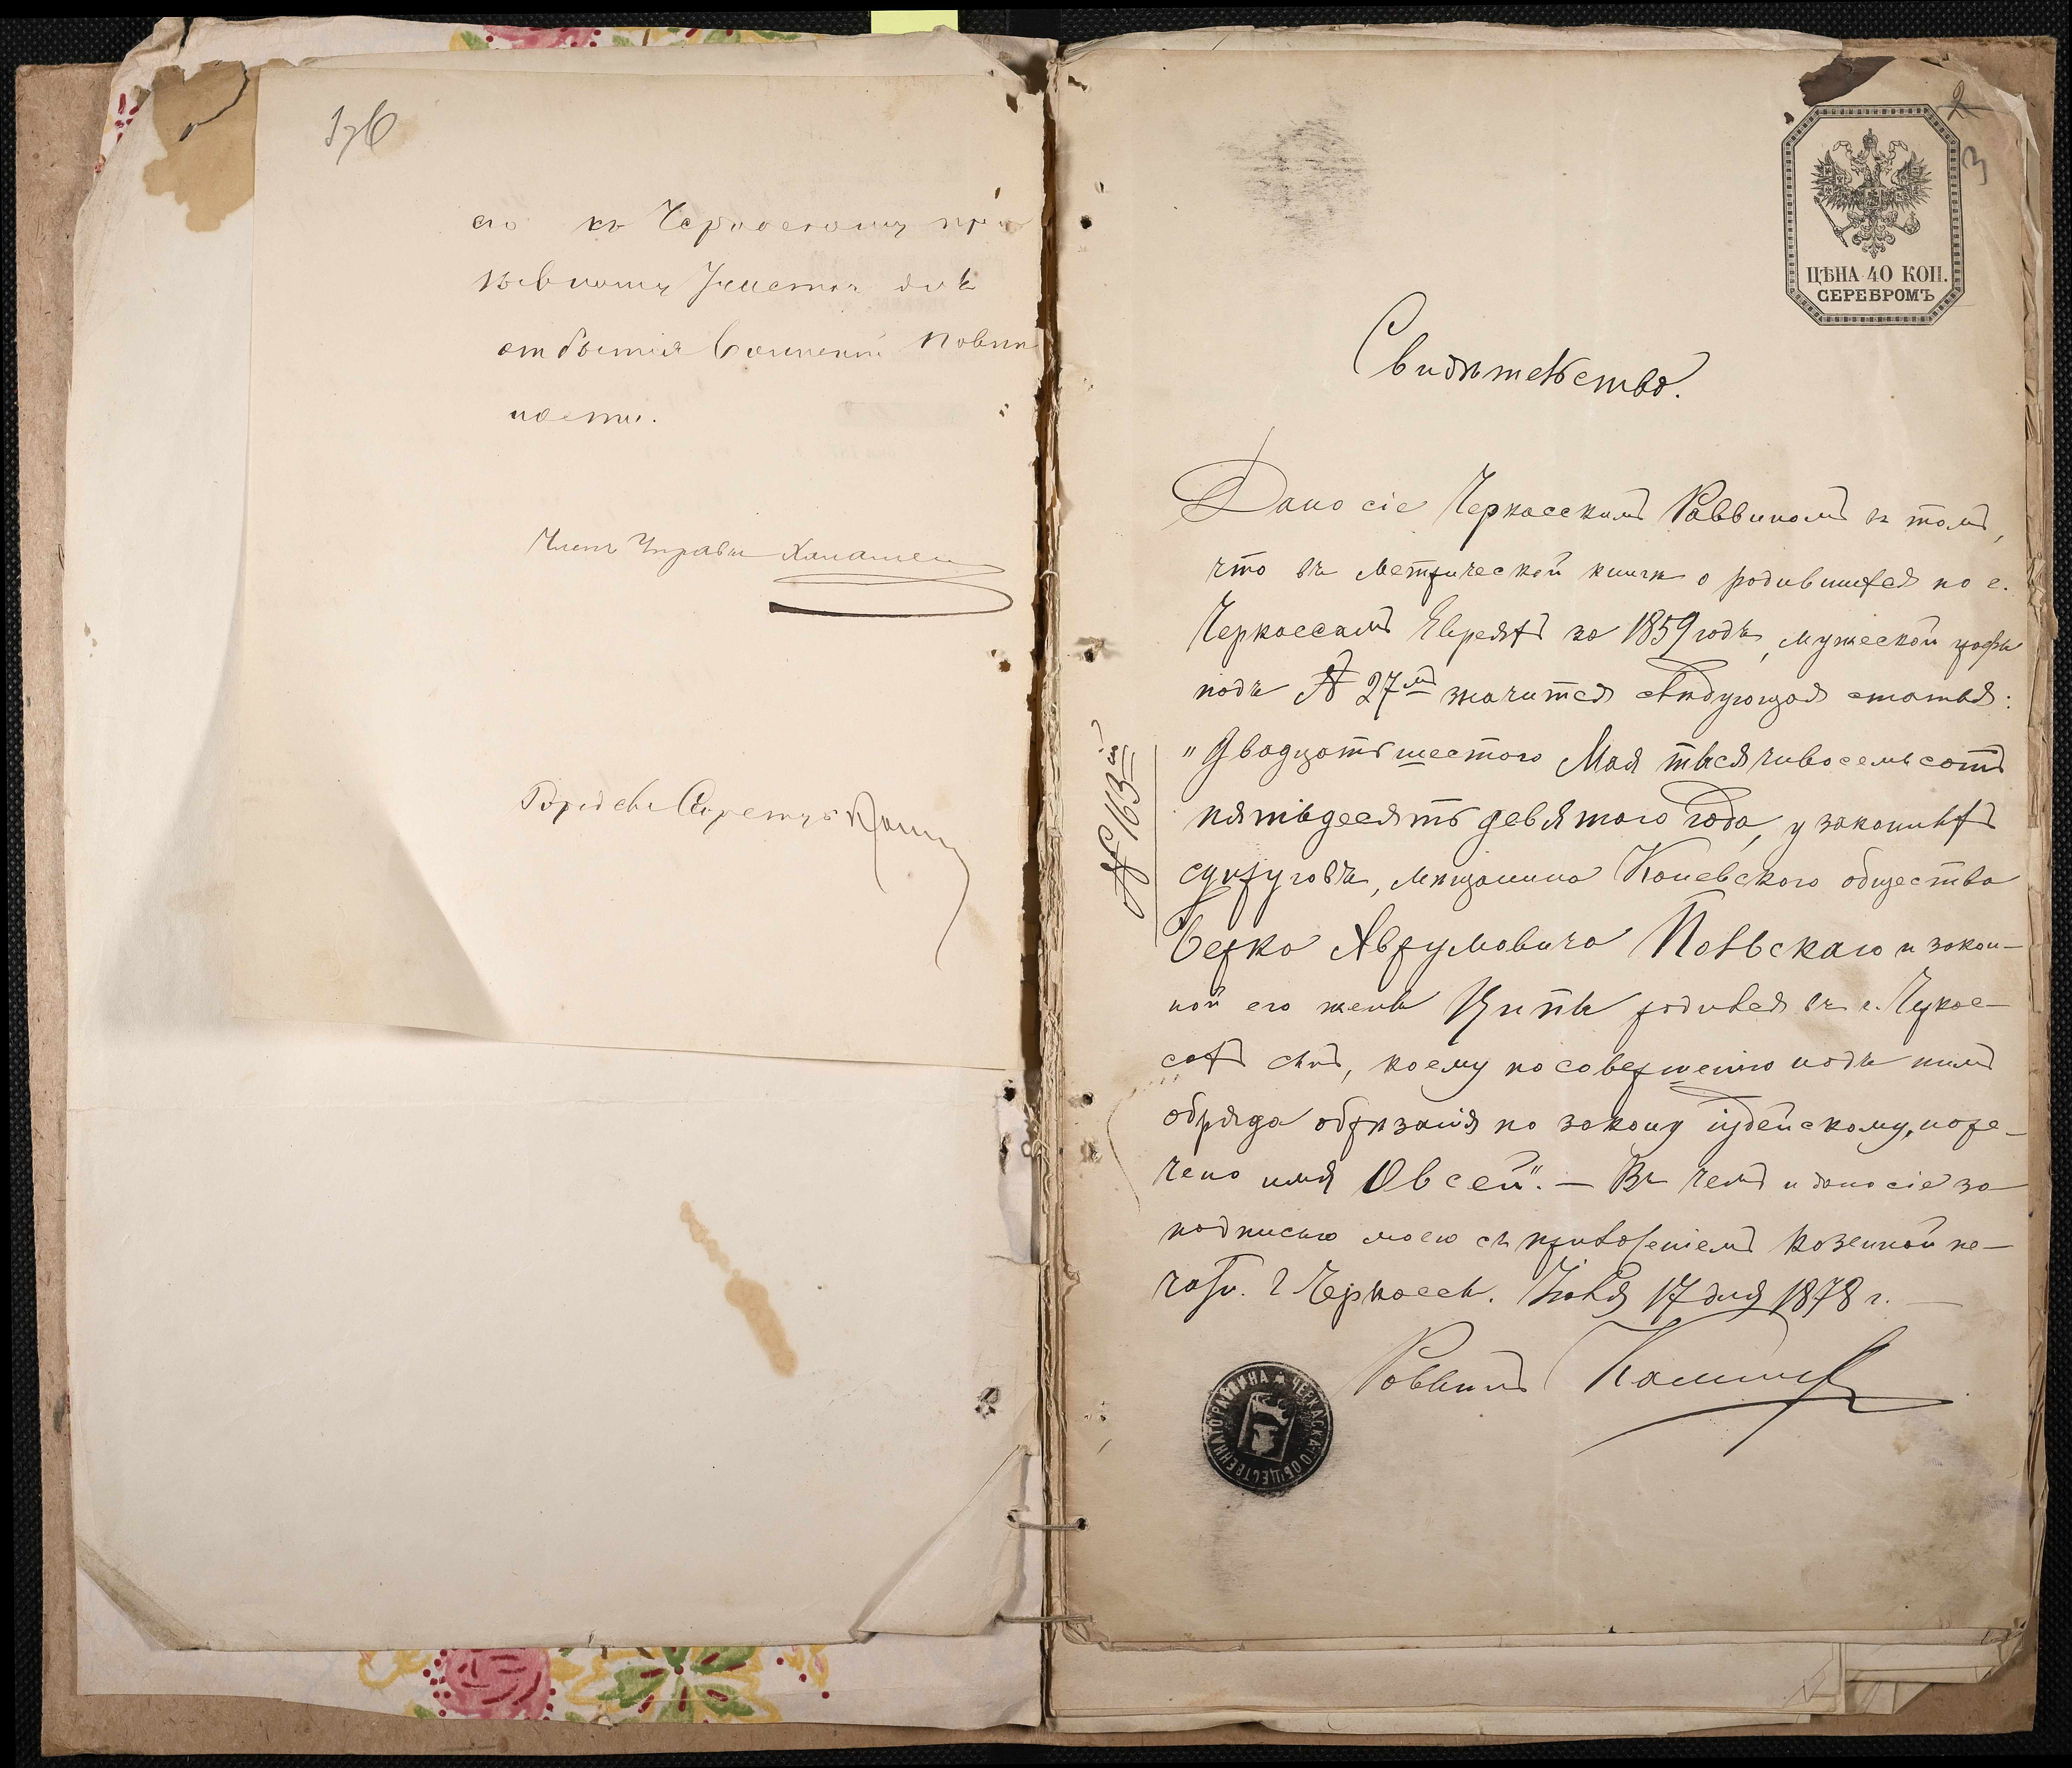 его къ Черкасскому при
зывному Участку для
отбытія воинской повин
ности.
Членъ Управы
Городск. Секретарь
2
3
ЦѢНА 40 КОП.
СЕРЕБРОМЪ
Свидѣтельство.
Дано сіе Черкасскимъ Раввиномъ въ томъ,
что въ метрической книгѣ о родившихся по г.
Черкассамъ Евреяхъ за 1859 годъ, мужеской графы
подъ № 27мъ значится слѣдующая статья:
"Двадцать шестого Мая тысяча восемьсотъ
пятьдесятъ девятого года, у законныхъ
супруговъ, мѣщанина Каневского общества
Берка Аврумовича Польскаго и закон-
ной его жены Ципы родился въ г. Черкас-
сахъ сынъ, коему по совершенію надъ нимъ
обряда обрѣзанія по закону іудейскому, наре-
чено имя Овсей". — Въ чемъ и дано сіе за
подписью моею съ приложеніемъ казенной пе-
чати. г. Черкассы. Іюля 17 дня 1878 г. —
Раввинъ
№ 163й
ЧЕРКАССКАГО ОБЩЕСТВЕННАГО РАВВИНА